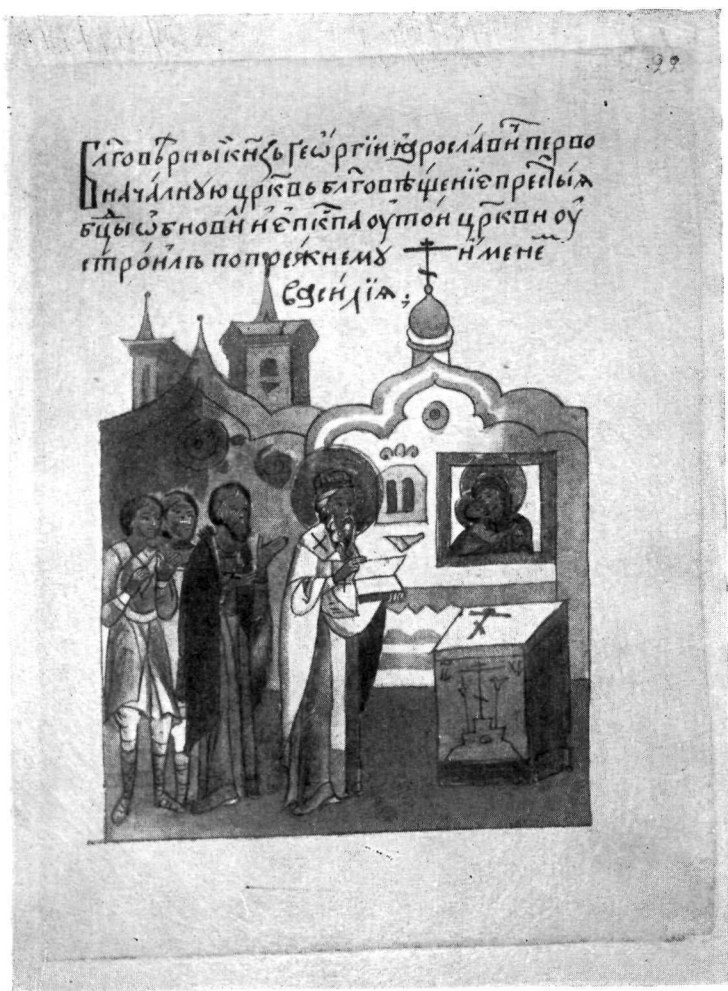 22
Бл҃говѣрныи кн҃зь Геѡ҃ргїи Ꙗрослави́ч перво
начáлную цр҃ковь бл҃говѣщенїе прест҃ыѧ
бц҃ы ѡбнови́ и е҆пи́скпа ѹ҆ той цр҃кви ѹ҆
строи́лъ попре́жнему и҆мене
Васи́лїѧ